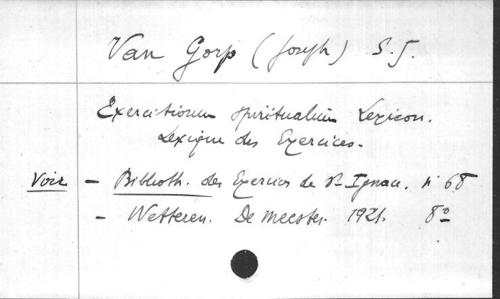 Van Gorp (Joseph) S.J.
Exercitiorum spiritualium Lexicon.
Lexique des Exercices.
Voir - Biblioth. des Exercices de St Ignace. n° 68
- Wetteren. De Meester. 1921. 8°